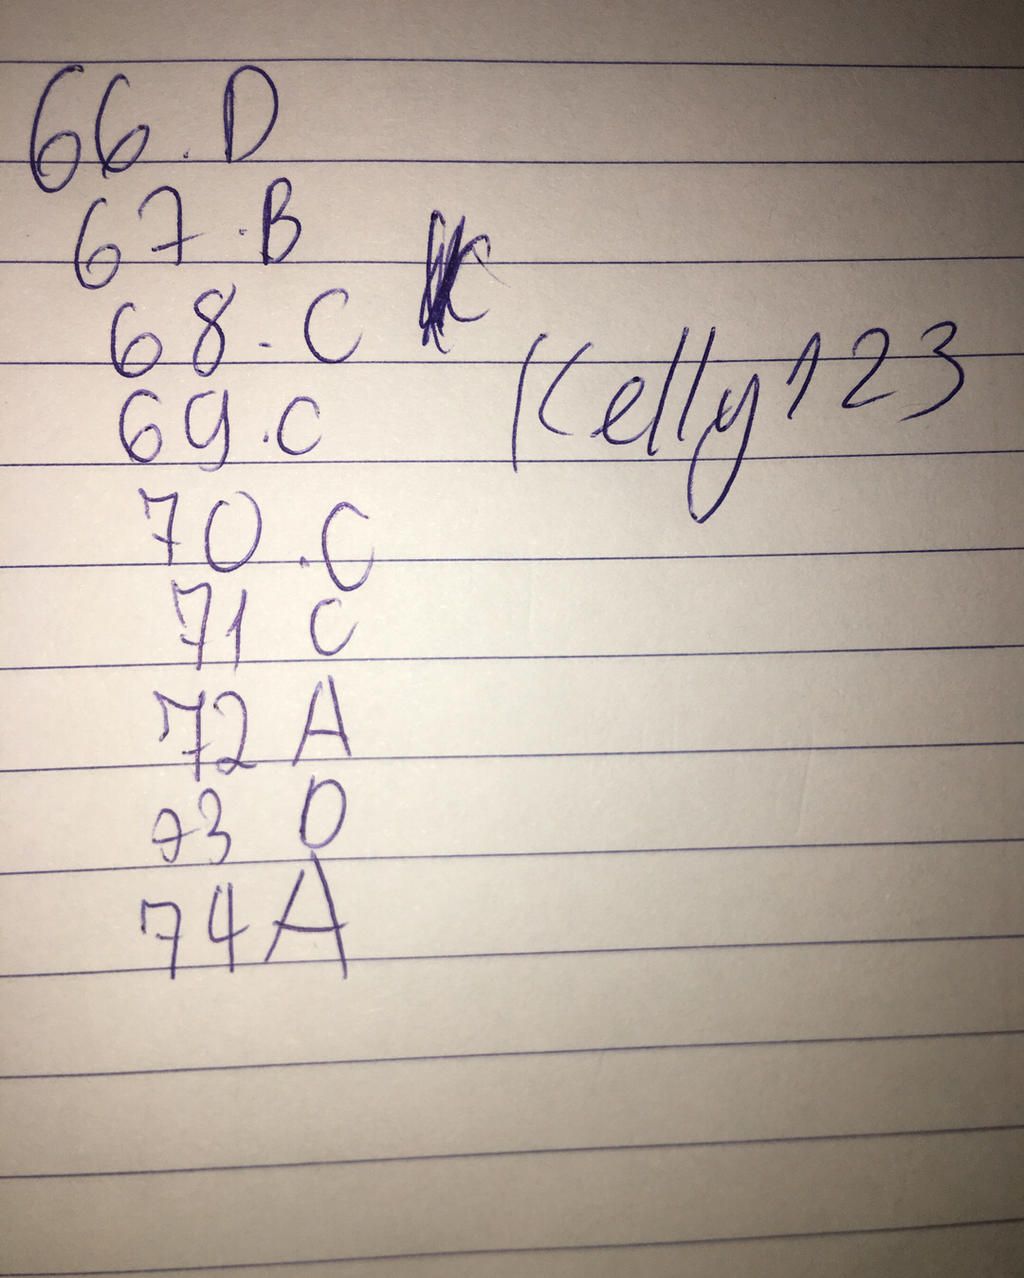 66. D
67. B
68. C
Kelly123
69. C
70. C
71 C
72 A
73 D
74 A